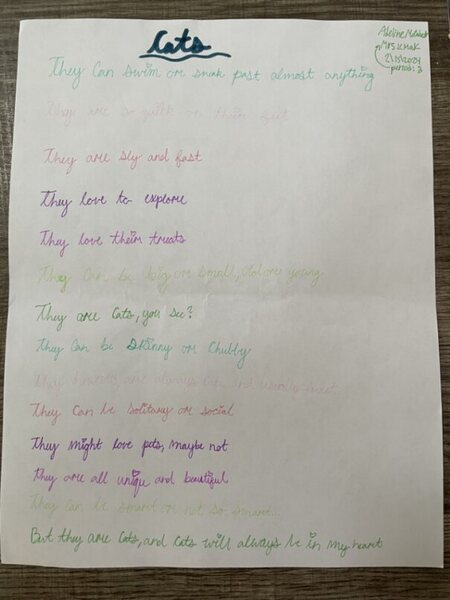 Cats
Adeline
Mrs. Khak
2/15/2024
period: 3
They Can swim or snak past almost anything
They are so quick on their feet
They are sly and fast
They love to explore
They love their treats
They can be big or small, old or young
They are Cats, you see?
They can be skinny or Chubby
They are always and
They Can be solitary or social
They might love pets, maybe not
They are all unique and beautiful
They can be smart or not so smart...
But they are Cats, and Cats will always be in my heart